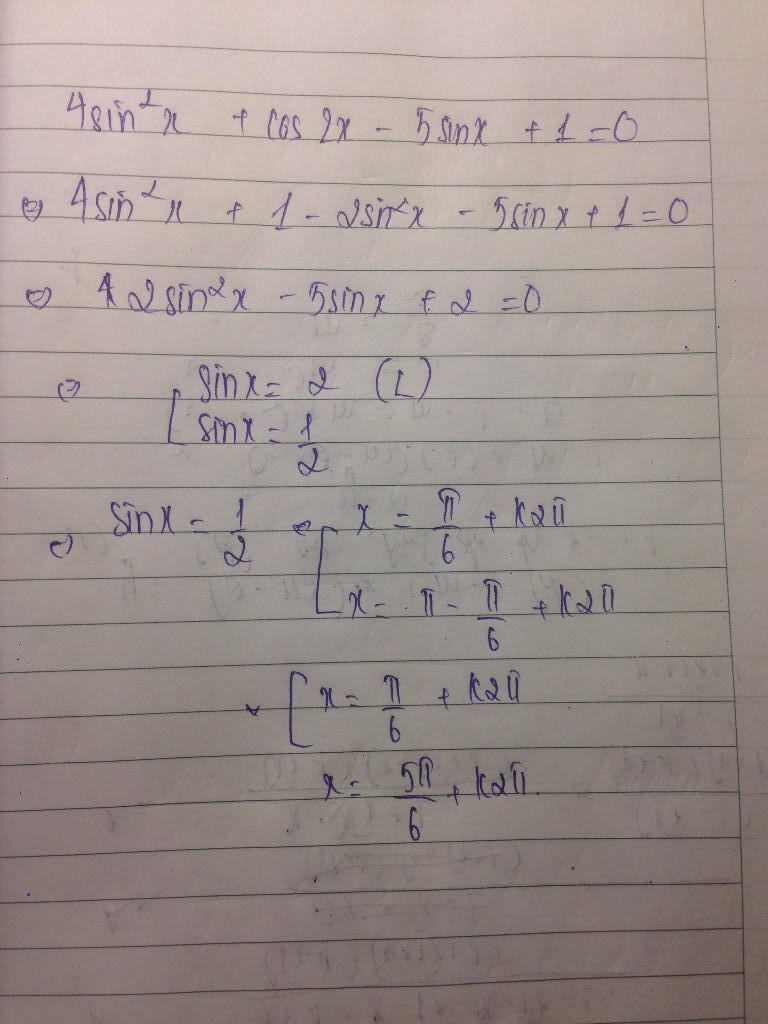 4sin²x + cos 2x - 5sinx + 1 = 0
⇔ 4sin²x + 1 - 2sin²x - 5sinx + 1 = 0
⇔ 2sin²x - 5sinx + 2 = 0
⇔ [ sinx = 2 (L)
sinx = 1/2
⇔ sinx = 1/2 ⇔ [ x = π/6 + k2π
x = π - π/6 + k2π
[ x = π/6 + k2π
x = 5π/6 + k2π.